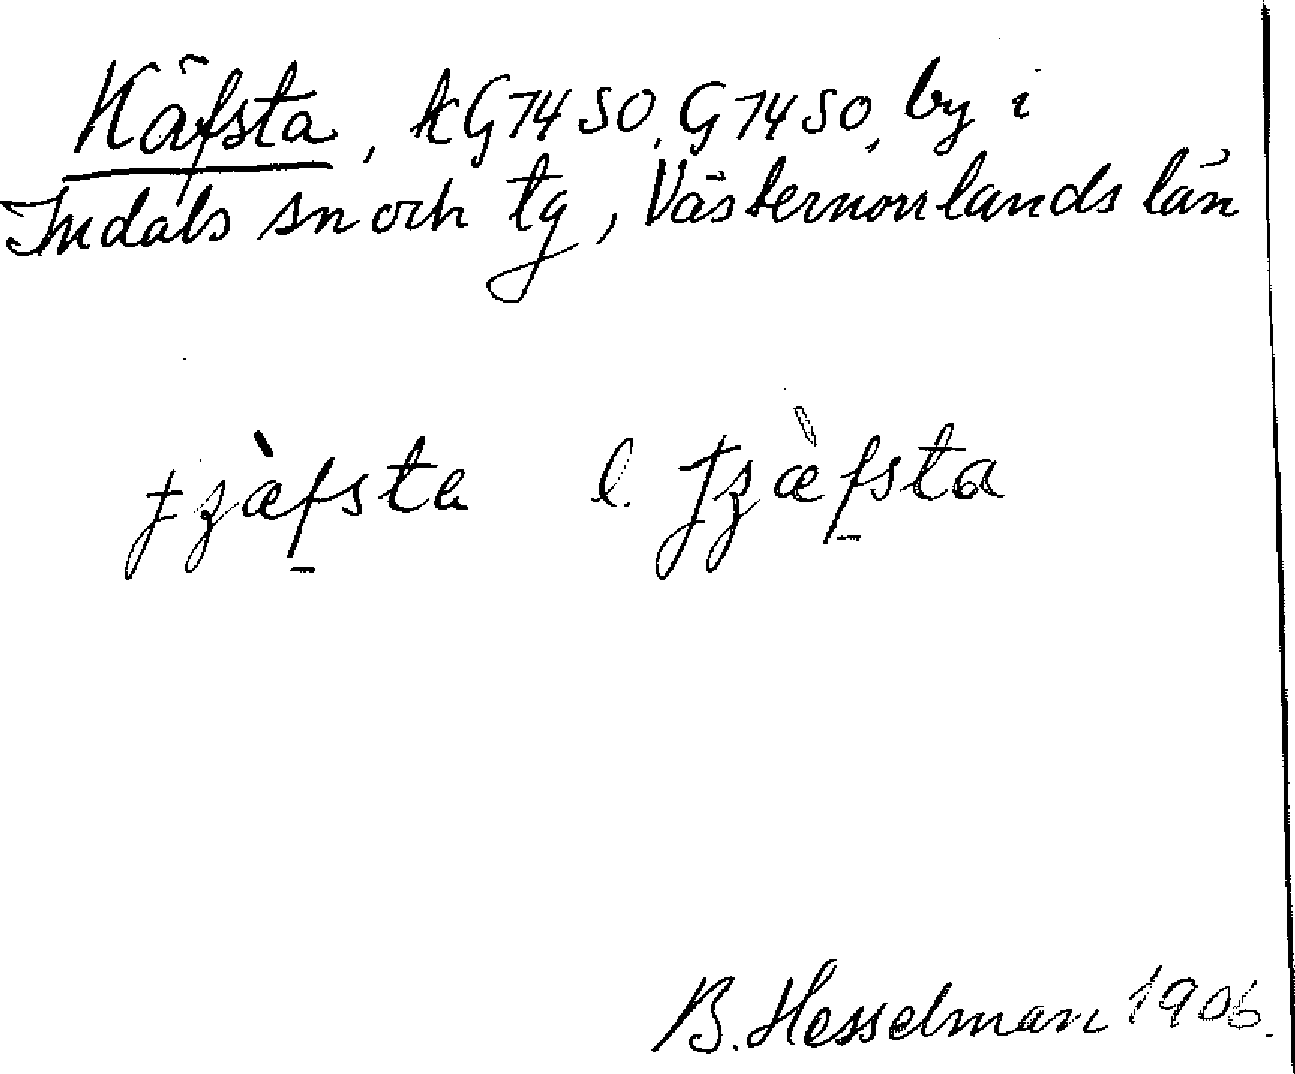 Käfsta, kG74SO, G74SO, by i
Indals sn och tg, Västernorrlands län
l.
B. Hesselman 1906.